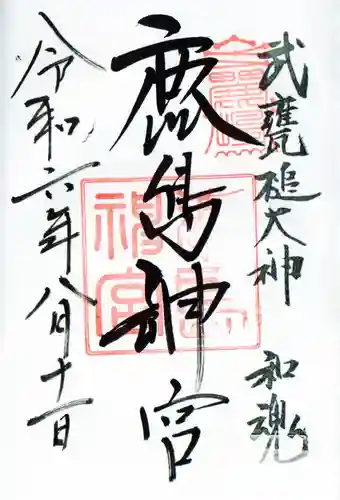 武甕槌大神 和魂
鹿島神宮
令和六年八月十一日